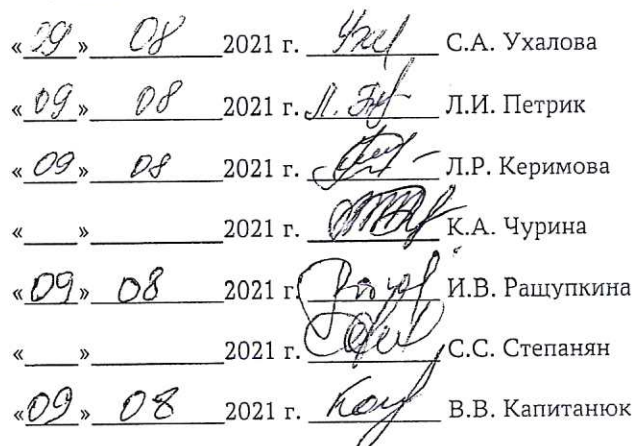 «29» 08 2021 г. С.А. Ухалова
«09» 08 2021 г. Л.И. Петрик
«09» 08 2021 г. Л.Р. Керимова
«__» ________ 2021 г. К.А. Чурина
«09» 08 2021 г. И.В. Ращупкина
«__» ________ 2021 г. С.С. Степанян
«09» 08 2021 г. В.В. Капитанюк